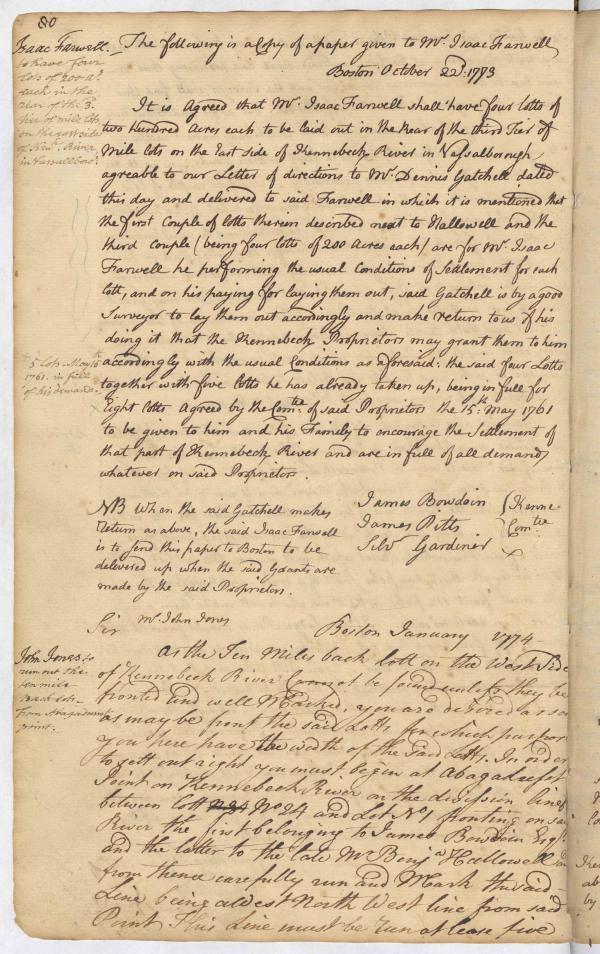 80
Isaac Farwell. The following is a Copy of a paper given to Mr. Isaac Farwell
to have four
lots of 200 as.
each in the
rear of the 3.
tier of mile lots
on the east side
of River
in Vassalboro'.
Boston October 22d. 1773
It is Agreed that Mr. Isaac Farwell shall have four lotts of
two hundred Acres each to be laid out in the Rear of the third Tier of
Mile lots on the East side of Kennebeck River in Vassalborough
agreable to our Letter of directions to Mr. Dennis Gatchell dated
this day and delivered to said Farwell in which it is mentioned that
the first Couple of lotts therein described next to Hallowell and the
third Couple (being four lotts of 200 Acres each) are for Mr. Isaac
Farwell he performing the usual Conditions of Settlement for each
lott, and on his paying for laying them out, said Gatchell is by a good
Surveyor to lay them out accordingly and make return to us of his
doing it that the Kennebeck Proprietors may grant them to him
accordingly with the usual Conditions as aforesaid: the said four Lotts
together with five lotts he has already taken up, being in full for
Eight lotts Agreed by the Comtee. of said Proprietors the 15th. May 1761
to be given to him and his Family to encourage the Settlement of
that part of Kennebeck River and are in full of all demands
whatever on said Proprietors.
5 Lots May 15
1761. in full
of his demands.
NB When the said Gatchell makes
return as above, the said Isaac Farwell
is to send this paper to Boston to be
delivered up when the said Grants are
made by the said Proprietors.
James Bowdoin
James Pitts
Silv. Gardiner
Kenne-
Comtee
Mr. John Jones
Sir Boston January 1774
John Jones to
run out the
ten mile
back lots
from Abagadusset
point.
As the Ten Miles back lott on the West Side
of Kennebeck River Cannot be found unless they be
fronted and well Marked, you are desired as soon
as may be front the said Lotts for which purpose
you here have the width of the said Lotts. In order
to sett out right you must begin at Abagadusset
Point on Kennebeck River on the division line
between lott No 24 and Lot No 1 fronting on said
River the first belonging to James Bowdoin Esqr.
and the latter to the late Mr Benja. Hallowell and
from thence carefully run and Mark the said
Line being a West North West line from said
Point This Line must be run at least five